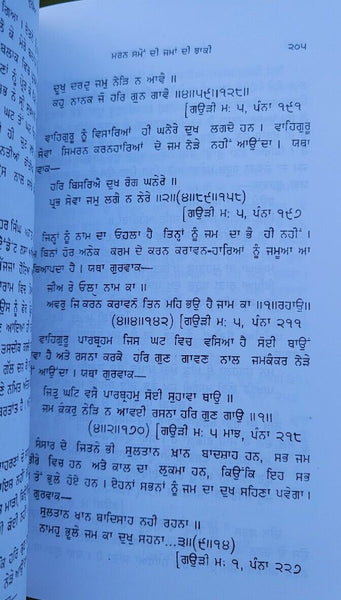 ਮਰਨ ਸਮੇਂ ਦੀ ਜਮਾਂ ਦੀ ਝਾਕੀ
੨੦੫
ਦੁਖੁ ਦਰਦੁ ਜਮੁ ਨੇੜਿ ਨ ਆਵੈ ॥
ਕਹੁ ਨਾਨਕ ਜੋ ਹਰਿ ਗੁਨ ਗਾਵੈ ॥੪॥੫੯॥੧੨੮॥
[ਗਉੜੀ ਮ: ੫, ਪੰਨਾ ੧੯੧
ਵਾਹਿਗੁਰੂ ਨੂੰ ਵਿਸਾਰਿਆਂ ਹੀ ਘਨੇਰੇ ਦੁਖ ਲਗਦੇ ਹਨ । ਵਾਹਿਗੁਰੂ
ਸੇਵਾ ਸਿਮਰਨ ਕਰਨਹਾਰਿਆਂ ਦੇ ਜਮ ਨੇੜੇ ਨਹੀਂ ਆਉਂਦਾ । ਯਥਾ
ਵਾਕ—
ਹਰਿ ਬਿਸਰਿਐ ਦੁਖ ਰੋਗ ਘਨੇਰੇ ॥
ਪ੍ਰਭ ਸੇਵਾ ਜਮੁ ਲਗੈ ਨ ਨੇਰੇ ॥੨॥(੪॥੮੯॥੧੫੮)
[ਗਉੜੀ ਮ: ੫, ਪੰਨਾ ੧੯੭
ਜਿਨ੍ਹਾਂ ਨੂੰ ਨਾਮ ਦਾ ਓਹਲਾ ਹੈ ਤਿਨ੍ਹਾਂ ਨੂੰ ਜਮ ਦਾ ਭੈ ਹੀ ਨਹੀਂ ।
ਬਿਨਾਂ ਹੋਰ ਅਨੇਕ ਕਰਮ ਦੇ ਕਰਨ ਕਰਾਵਨ-ਹਾਰਿਆਂ ਨੂੰ ਜਮੂਆ ਆ
ਬਿਆਪਦਾ ਹੈ । ਯਥਾ ਗੁਰਵਾਕ—
ਜੀਅ ਰੇ ਓਲ੍ਹਾ ਨਾਮ ਕਾ ॥
ਅਵਰੁ ਜਿ ਕਰਨ ਕਰਾਵਨੋ ਤਿਨ ਮਹਿ ਭਉ ਹੈ ਜਾਮ ਕਾ ॥੧॥ਰਹਾਉ॥
(੪॥੪॥੧੪੨) [ਗਉੜੀ ਮ: ੫, ਪੰਨਾ ੨੧੧
ਵਾਹਿਗੁਰੂ ਪਾਰਬ੍ਰਹਮ ਜਿਸ ਘਟ ਵਿਚ ਵਸਿਆ ਹੈ ਸੋਈ ਥਾਉਂ
ਹੈ ਅਤੇ ਰਸਨਾ ਕਰਕੇ ਹਰਿ ਗੁਣ ਗਾਵਣ ਨਾਲ ਜਮਕੰਕਰ ਨੇੜੇ
ਆਉਂਦਾ । ਯਥਾ ਗੁਰਵਾਕ—
ਜਿਤੁ ਘਟਿ ਵਸੈ ਪਾਰਬ੍ਰਹਮੁ ਸੋਈ ਸੁਹਾਵਾ ਥਾਉ ॥
ਜਮ ਕੰਕਰੁ ਨੇੜਿ ਨ ਆਵਈ ਰਸਨਾ ਹਰਿ ਗੁਣ ਗਾਉ ॥੧॥
(੪॥੨॥੧੭੦) [ਗਉੜੀ ਮ: ੫ ਮਾਝ, ਪੰਨਾ ੨੧੮
ਸੰਸਾਰ ਦੇ ਜਿਤਨੇ ਭੀ ਸੁਲਤਾਨ ਖ਼ਾਨ ਬਾਦਸ਼ਾਹ ਹਨ, ਸਭ ਜਮ
ਵਿਚ ਹਨ ਅਤੇ ਕਾਲ ਦਾ ਲੁਕਮਾ ਹਨ, ਕਿਉਂਕਿ ਇਹ ਸਭ
ਤੋਂ ਭੁਲੇ ਹੋਏ ਹਨ । ਏਹਨਾਂ ਸਭਨਾਂ ਨੂੰ ਜਮ ਦਾ ਦੁਖ ਸਹਿਣਾ ਪਵੇਗਾ ।
ਗੁਰਵਾਕ—
ਸੁਲਤਾਨ ਖਾਨ ਬਾਦਿਸਾਹ ਨਹੀ ਰਹਨਾ ॥
ਨਾਮਹੁ ਭੂਲੇ ਜਮ ਕਾ ਦੁਖੁ ਸਹਨਾ...੩॥(੯॥੧੪)
[ਗਉੜੀ ਮ: ੧, ਪੰਨਾ ੨੨੭